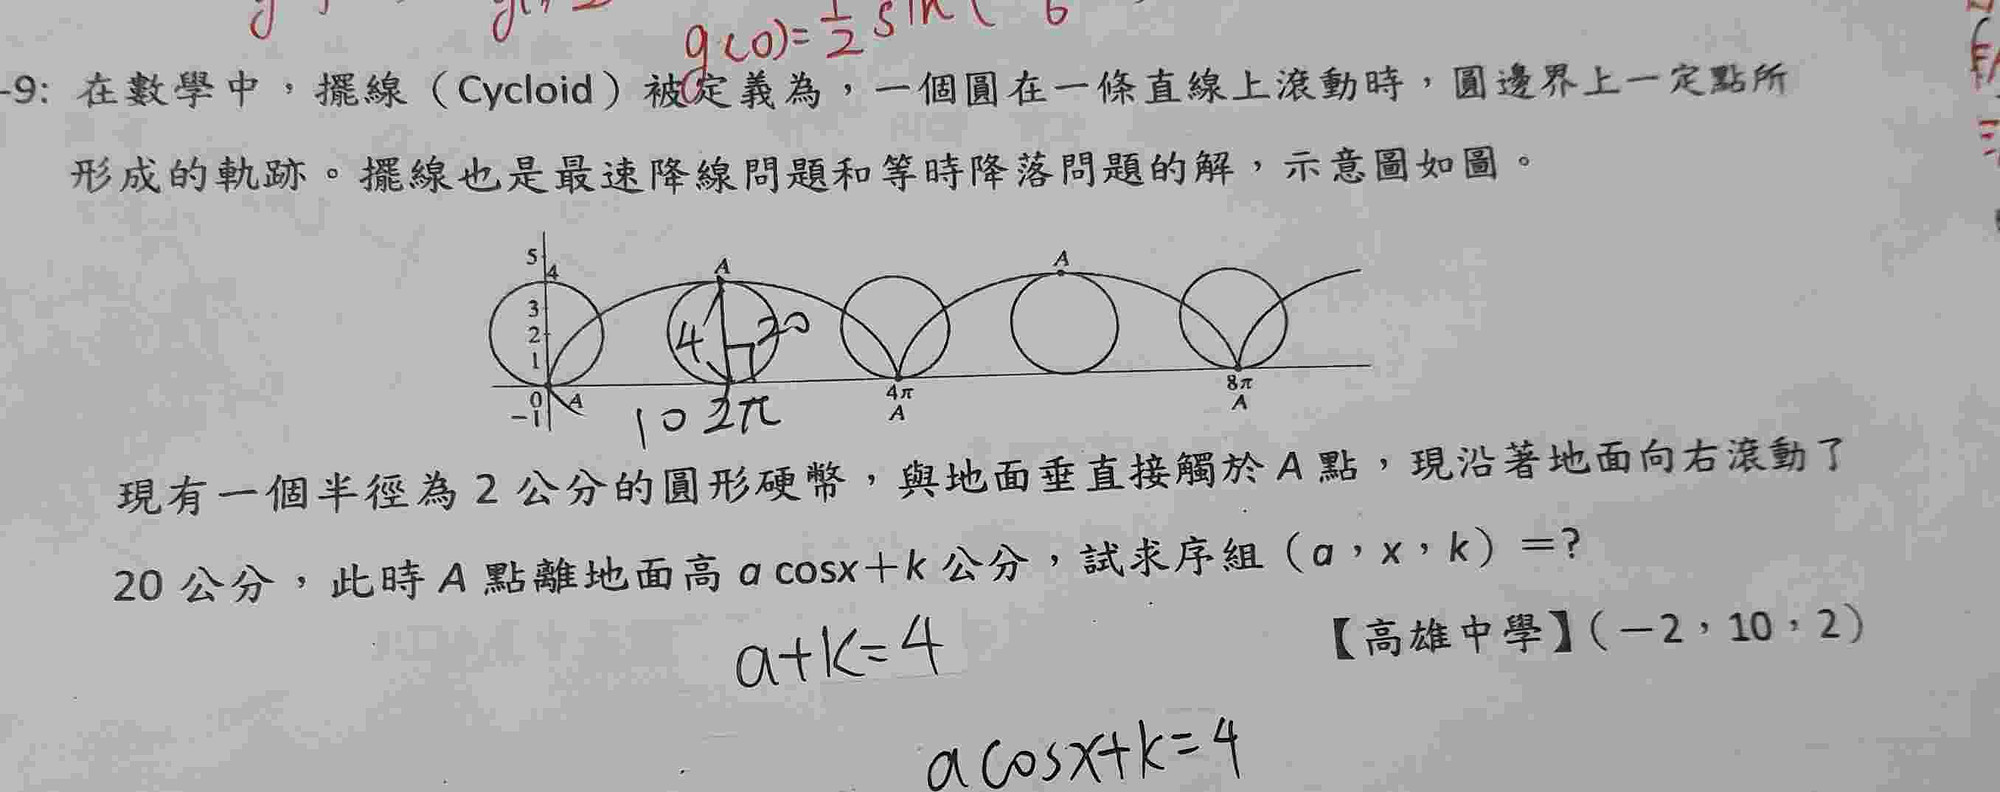 g(0)=1/2 sin(
-9: 在數學中，擺線（Cycloid）被定義為，一個圓在一條直線上滾動時，圓邊界上一定點所
形成的軌跡。擺線也是最速降線問題和等時降落問題的解，示意圖如圖。
5
4
3
2
1
0
-1
A
A
A
4 20
10 2π
4π
A
8π
A
現有一個半徑為 2 公分的圓形硬幣，與地面垂直接觸於 A 點，現沿著地面向右滾動了
20 公分，此時 A 點離地面高 a cosx＋k 公分，試求序組（a，x，k）＝?
a+k=4
【高雄中學】（－2，10，2）
a cosx+k=4